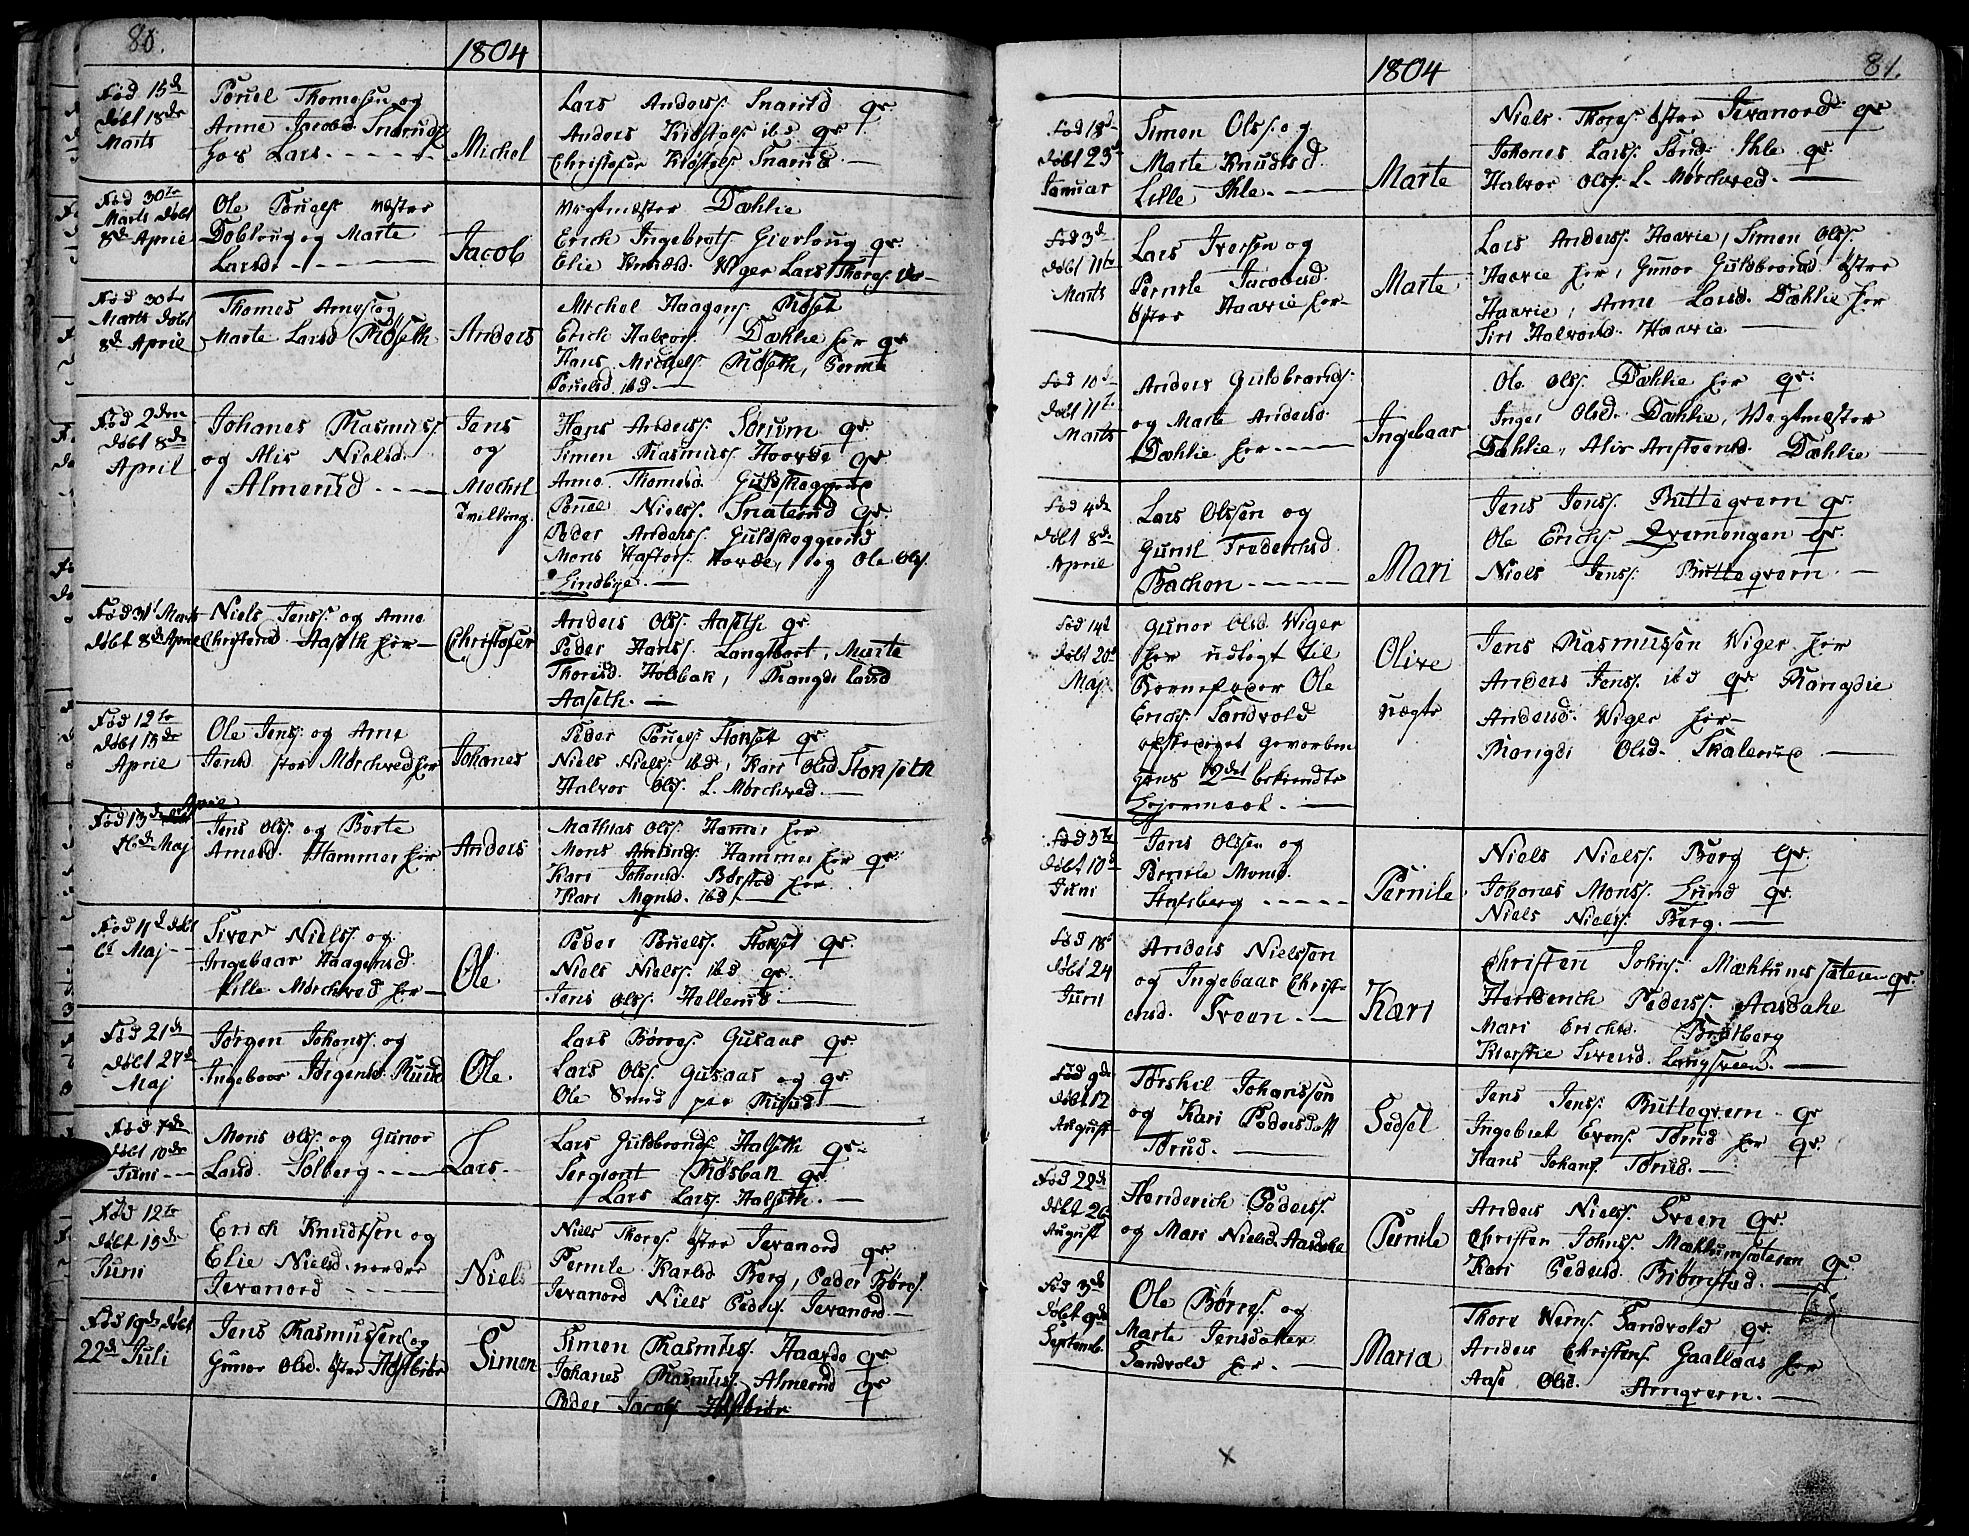 80.
1804
Fød 15de
døbt 18de
Marts
Pouel Thomesen og
Anne Jacobsd. Snarud
hos Lars
Michel
Lars Anderss. Snarud qv.
Anders Kiøstels. ibd qv.
Christofer Kiøstels. Snarud
Fød 30te
Marts døbt
8de Aprile
Ole Pouels. vester
Dobloug og Marte
Larsdr
Jacob
Vegtmæster Dæhlie
Erich Ingebrets. Gierloug qv.
Elie Knudsd. Wiger Lars Thores.
Fød 30te
Marts døbt
8de Aprile
Thomes Arnes. og
Marte Larsd Røseth
Anders
Michel Haagens. Røset
Erich Halvors. Dæhlie her qv
Hans Michels. Røseth, Pernele
Pouelsd. ibd.
Fød 2den
døbt 8de
April
Johanes Rasmuss.
og Alis Nielsd.
Almerud
Jens
og
Mechel
Tvilling
Hans Anderss. Sørum qv.
Simen Rasmuss Haarde qv.
Anne Thomesd. Guldskeggerud
Pouel Niels. Snaterud qv.
Peder Anderss. Guldskeggerud
Mons Haftors. Hovde, og Ole Ols.
Lindbye.
Fød 31t Marts
døbt 8de Aprile
Niels Jenss. og Anne
Christensd Aaseth her
Christofer
Anders Olss. Aaseth qv.
Peder Hanss. Langbart, Marte
Thoresd. Holsbak, Rangdi Larsd
Aaseth.
Fød 12te
døbt 15de
Aprile
Ole Jenss. og Anne
Jensd stor Mørchved her
Johanes
Peder Pouels. Stonset qv.
Niels Niels. ibd, Kari Olsd Stonseth
Halvor Ols. L. Mørchved.
Fød 13de Aprile
døbt
6de Maj
Jens Olss. og Borte
Arnesd. Hammer her
Anders
Mathias Olss. Hamer her
Mons Amunds. Hammer her qv.
Kari Johansd. Børstad her
Kari Monsd. ibd.
Fød 11de døbt
6t Maj
Siver Nielss. og
Ingebaar Haagensd.
Lille Mørchved her
Ole
Peder Pouels. Stonset qv.
Niels Niels. ibd qv.
Jens Olss. Hollerud.
Fød 21de
døbt 27de
Maj
Jørgen Johanss. og
Ingeboer Jørgensd. Ruud
Ole.
Lars Børres. Gusaas qv.
Lars Olss. Gusaas og qv.
Ole Smed paa Ruud
Fød 7de
døbt 10de
Juni
Mons Olss. og Gunor
Larsd. Solberg
Lars
Lars Guldbrands. Halseth qv.
Sergiant Røsban qv.
Lars Larss. Halseth.
Fød 12te
døbt 15de
Juni
Erich Knudtsen og
Elie Nielsd. nordre
Jevanord
Niels
Niels Thores. østre Jevanord qv.
Pernele Karlsd Berg, Peder Børres.
Jevanord Niels Peders. Jevanord.
Fød 19de døbt
22de Juli
Jens Rasmussen og
Gunor Olsd. østre Hofsbroe
Simen
Simen Rasmuss. Haarde qv.
Johanes Rasmuss. Almerud qv
Peder Jacobs
1804
81.
Fød 18de
døbt 23
Januar
Simen Olss. og
Marte Knudtsd.
Lille Ihle.
Marte
Niels Thores. østre Jevanord qv
Johanes Larss. Sønd. Ihle qv
Halvor Olss. L. Mørchved.
Fød 3de
døbt 11te
Marts
Lars Iversen og
Pernele Jacobsd
østre Haavie her
Marte
Lars Anderss. Haavie, Simen Olss.
Haavie her, Gunor Guldbrandsd. østre
Haavie, Anne Larsd. Dæhlie her
Siri Halvorsd. Haavie
Fød 10de
døbt 11te
Marts
Anders Guldbrands.
og Marte Andersd.
Dæhlie her
Ingebaar
Ole Olss. Dæhlie her qv.
Inger Olsd. Dæhlie, Vegtmæster
Dæhlie, Alis Arstensd. Dæhlie
Fød 4de
døbt 8de
Aprile
Lars Olssen og
Gunil Frederichsd.
Bachen
Mari
Jens Jenss. Butteqvern qv.
Ole Erichs. Qvernengen qv.
Niels Jenss. Butteqvern.
Fød 14de
døbt 20de
Maj
Gunor Olsd. Wiger
her udlagt til
Barnefader Ole
Erichs. Sandvold
gens 2det bekiendte
Leiermaal.
Olive
uægte
Jens Rasmussen Wiger her
Anders Jenss. ibd qv Rangdie
Andersd. Wiger her
Rangdi Olsd. Skalerud
Fød 5te
døbt 10de
Juni
Jens Olssen og
Pernele Monsd.
Stafsberg
Pernile
Niels Nielss. Berg qv.
Johanes Monss. Lund qv.
Niels Nielss. Berg.
Fød 18t
døbt 24
Juni
Anders Nielssen
og Ingebaar Christ-
ensd. Sveen.
Kari
Christen Johns. Mæhlumsæteren qv.
Henderich Pederss. Aasdahe
Mari Erichsd. Bratberg
Kierstie Svensd. Langsveen.
Fød 9de
døbt 12
August
Torkhel Johanssøn
og Kari Pedersdatt
Torud.
Sødsel
Jens Jenss. Butteqvern qv
Ingebret Evens. Torud her qv.
Hans Johans. Torud.
Fød 22de
døbt 26
August
Henderich Pederss.
og Mari Nielsd. Aasdahl
Pernile
Anders Nielss. Sveen qv.
Christen Johns. Mæhlumsæteren qv.
Kari Pedersd. Biørnstad.
Fød 3de
døbt 9de
Septemb.
Ole Børres. og
Marte Jensdatter
Sandvold her.
Maria
Thore Werns. Sandvold qv.
Anders Christens. Gaallaas her
Aase Olsd. Arnqvern.